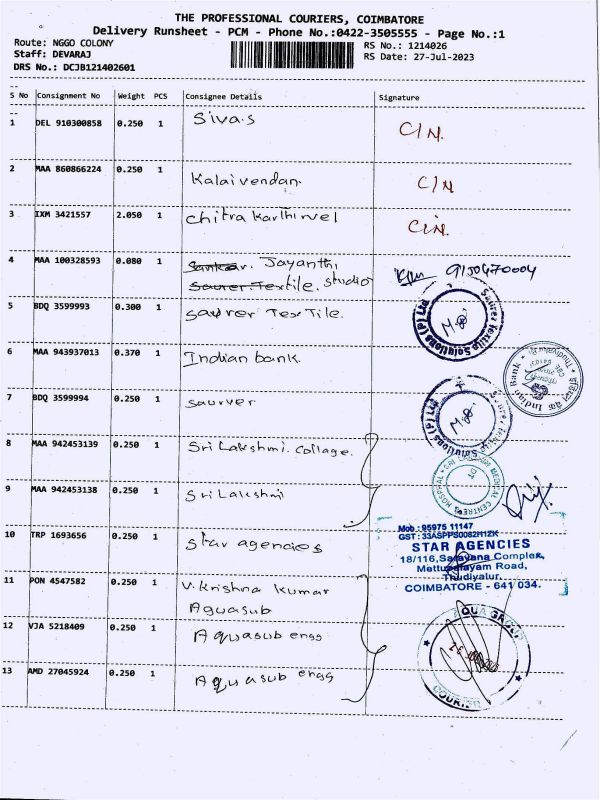 THE PROFESSIONAL COURIERS, COIMBATORE
Delivery Runsheet - PCM - Phone No.:0422-3505555 - Page No.:1
Route: NGGO COLONY
Staff: DEVARAJ
DRS No.: DCJB121402601
RS No.: 1214026
RS Date: 27-Jul-2023
S No Consignment No Weight PCS Consignee Details Signature
1 DEL 910300858 0.250 1 Siva.S C/N.
2 MAA 860866224 0.250 1 Kalaivendan. C/N
3 IXM 3421557 2.050 1 Chitra Karthi vel C/N.
4 MAA 100328593 0.080 1 Jayanthi
Saurer Textile. studio
5 BDQ 3599993 0.300 1 Saurer TexTile.
6 MAA 943937013 0.370 1 Indian bank.
7 BDQ 3599994 0.250 1 Saurver
8 MAA 942453139 0.250 1 Sri Lakshmi. Collage.
9 MAA 942453138 0.250 1 Sri Lakshmi
10 TRP 1693656 0.250 1 Star agencies
11 PON 4547582 0.250 1 V. Krishna Kumar
Aquasub
12 VJA 5218409 0.250 1 Aquasub engg
13 AMD 27045924 0.250 1 Aquasub engg
Saurer Textile Solutions (P) Ltd
Indian Bank
Saurer Textile Solutions (P) Ltd
MEDICAL CENTRE HOSPITAL
Mob: 95975 11147
GST: 33ASPPS0082H1ZK
STAR AGENCIES
18/116, Saravana Complex,
Mettupalayam Road,
Thudiyalur,
COIMBATORE - 641 034.
AQUA GROUP
COURIER